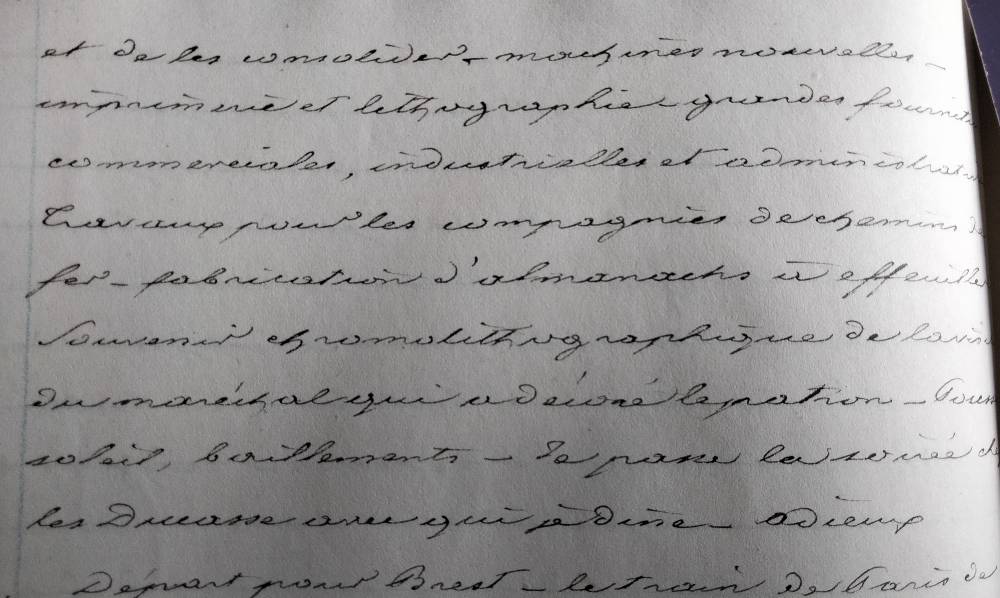 et de les consolider - machines nouvelles -
imprimerie et lithographie - grandes fournitu
commerciales, industrielles et administrati
Travaux pour les compagnies de chemins de
fer - fabrication d'almanachs à effeuiller
Souvenir chromolithographique de la visi
du maréchal qui a décoré le patron -
soleil, baillements - Je passe la soirée ch
les Ducasse avec qui je dîne - adieux
Départ pour Brest - le train de Paris de